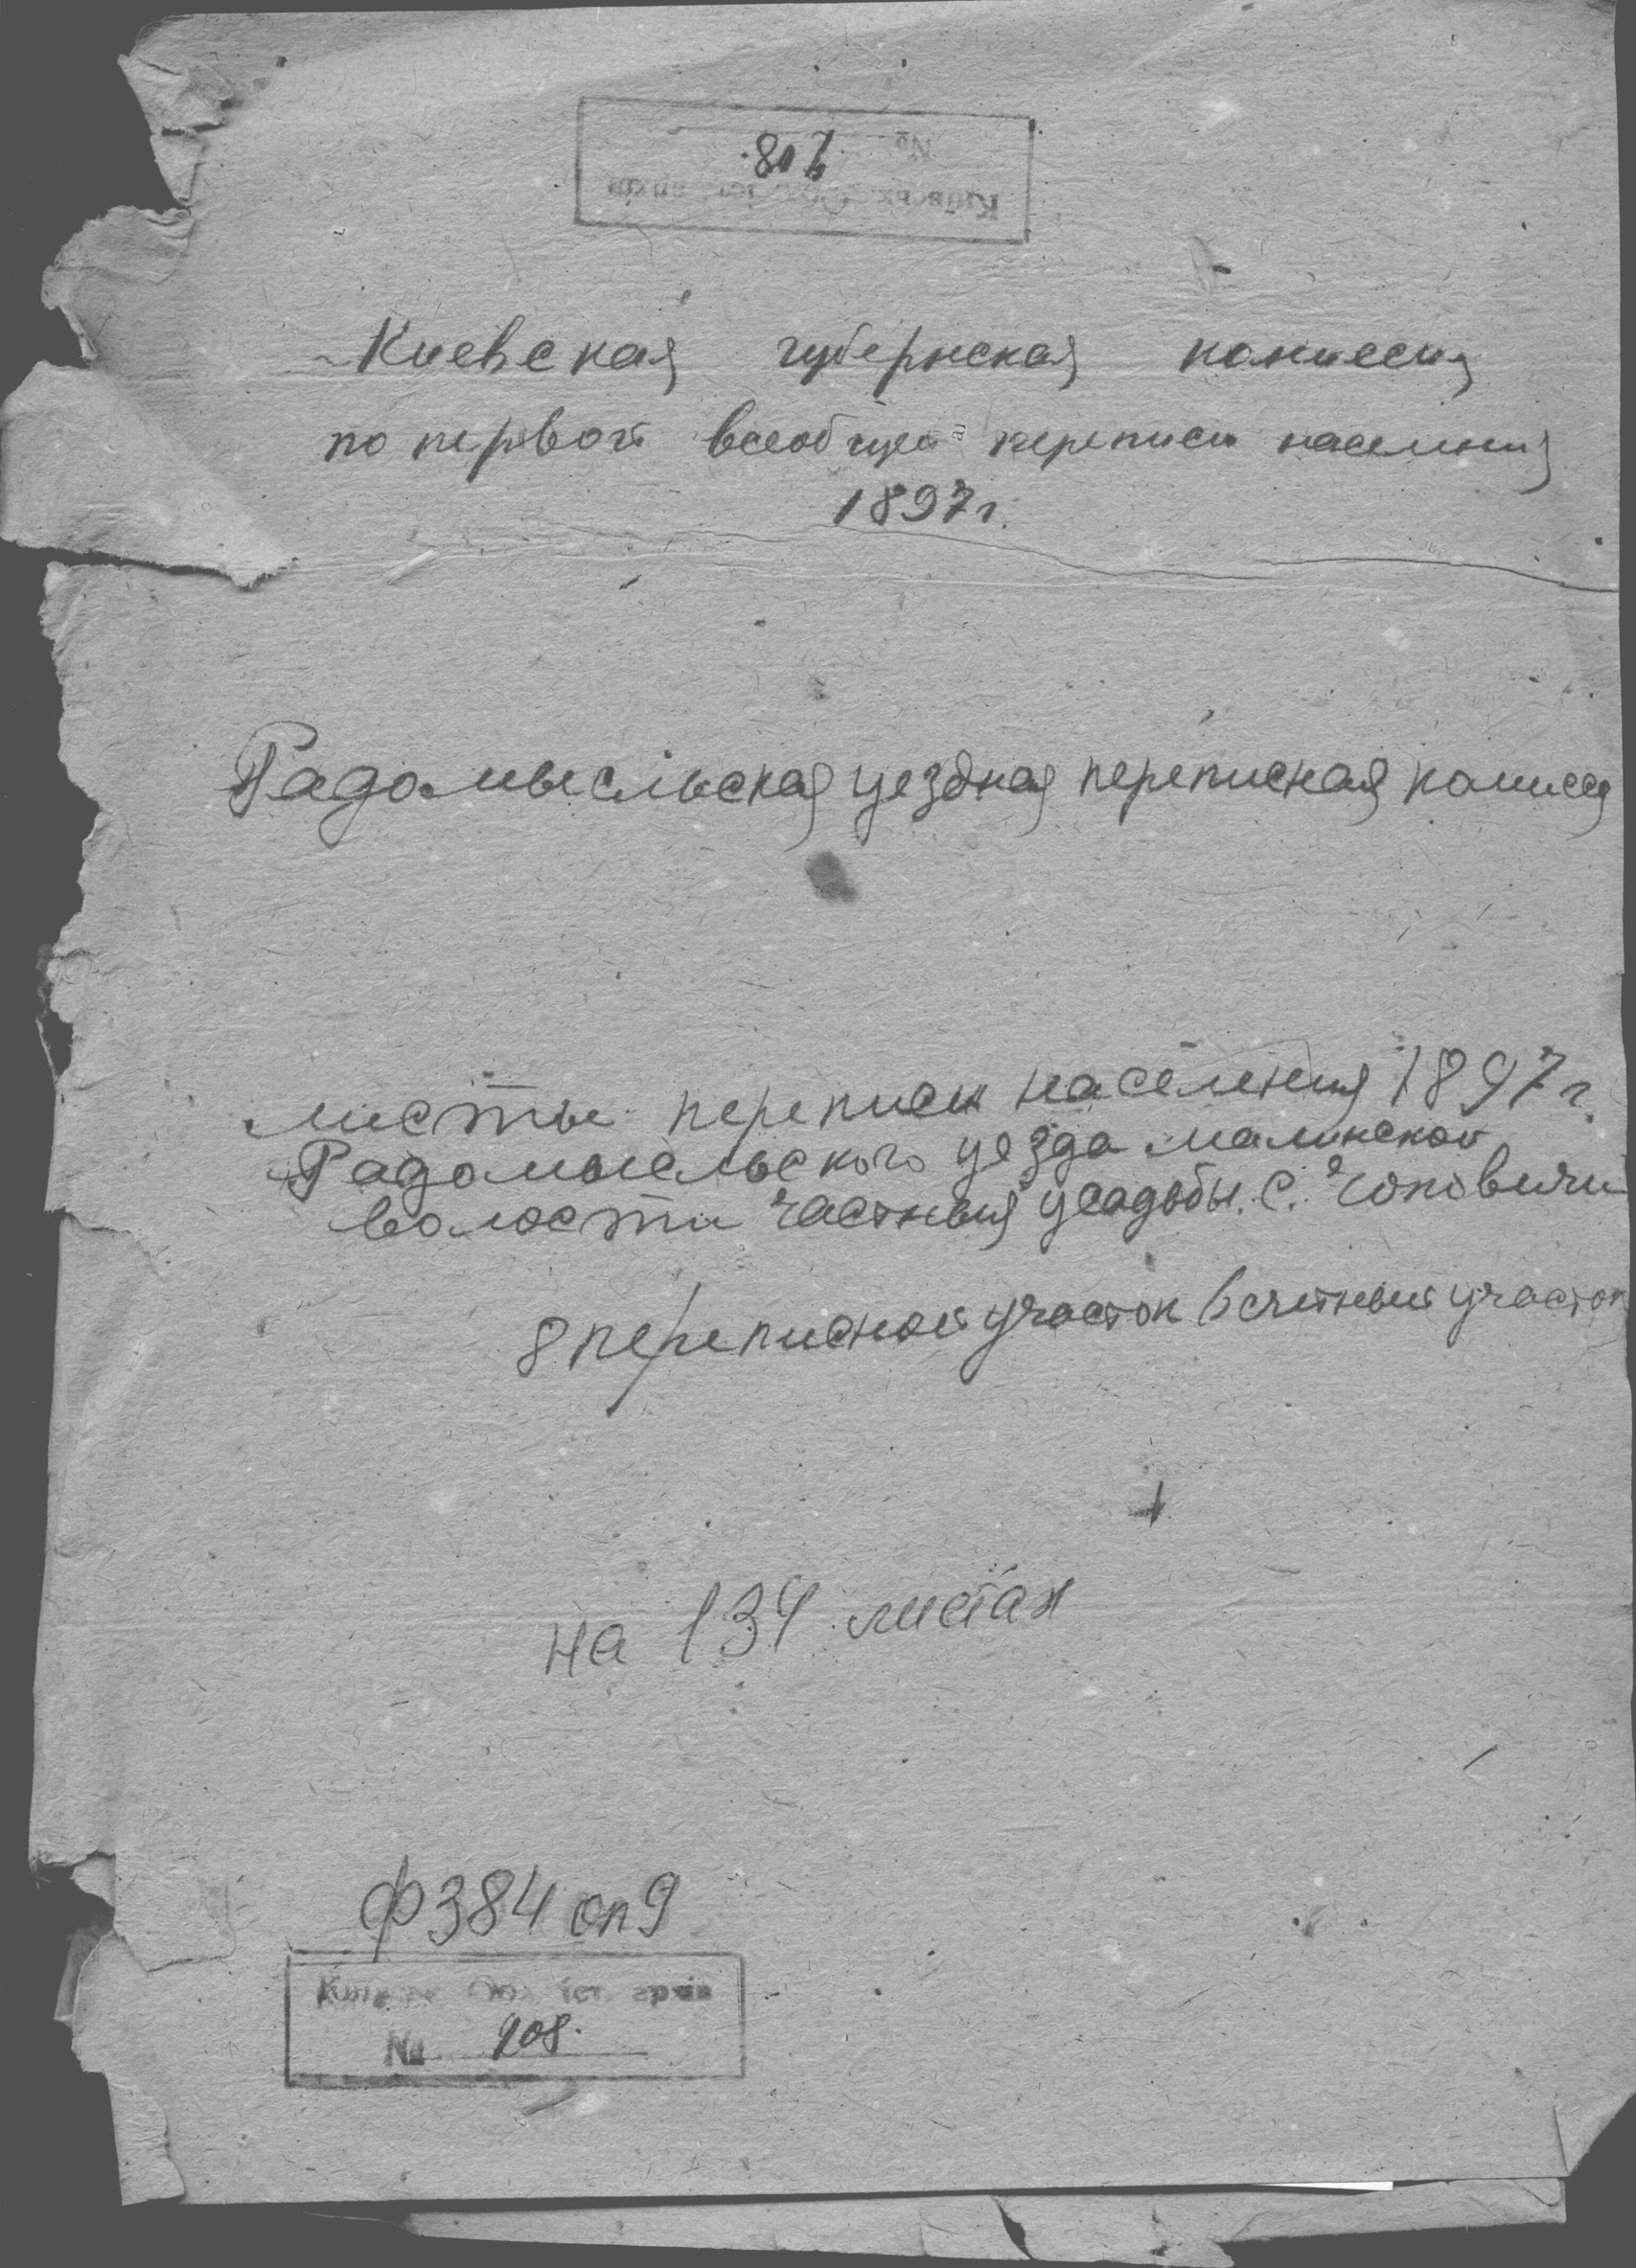 №
Київськ. Обл. іст. архів
Киевская губернская комиссия
по первой всеобщей переписи населения
1897 г.
Радомысльская уездная переписная комисся
Листы переписи населения 1897 г.
Радомысльского уезда Малинской
волости частныя усадьбы. с. Чоповичи
8 переписной участок 6 счетный участок
на 134 листах
Ф 384 оп 9
Київськ. Обл. іст. архів
№ 908.